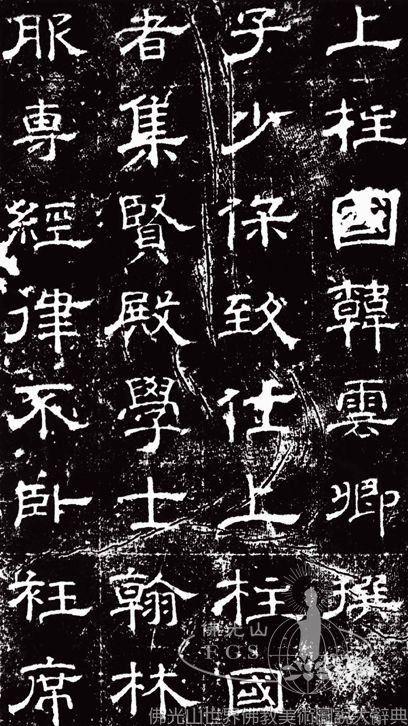 上柱國韓雲卿撰
子少保致仕上柱國
者集賢殿學士翰林
服専經律不卧衽席
佛光山
FGS
佛光山世界佛教美術圖說大辭典